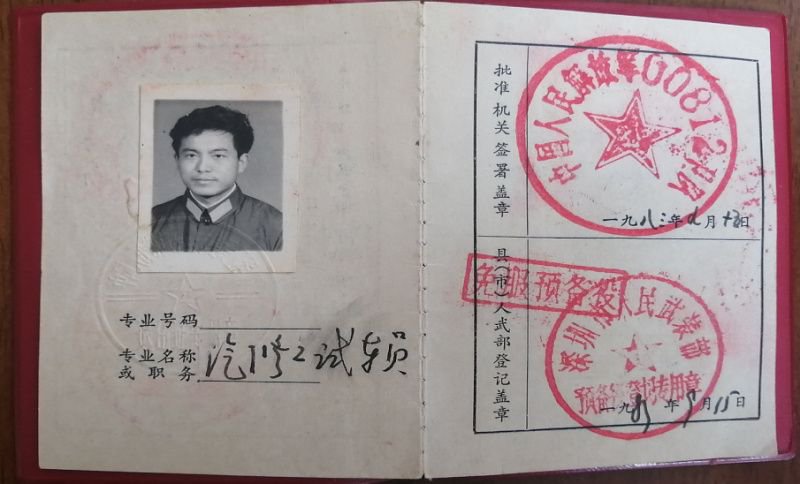 专业号码
专业名称
或职务
汽修工试车员
批准机关签署盖章
中国人民解放军00812部队
一九八三年 月 日
县(市)人武部登记盖章
免服预备役
深圳市人民武装部
预备役登记专用章
一九 年 月15日